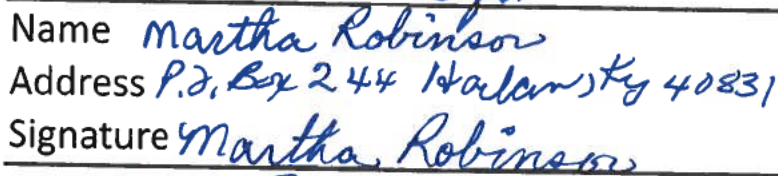 Name Martha Robinson
Address P.O. Box 244 Harlan, Ky 40831
Signature Martha Robinson